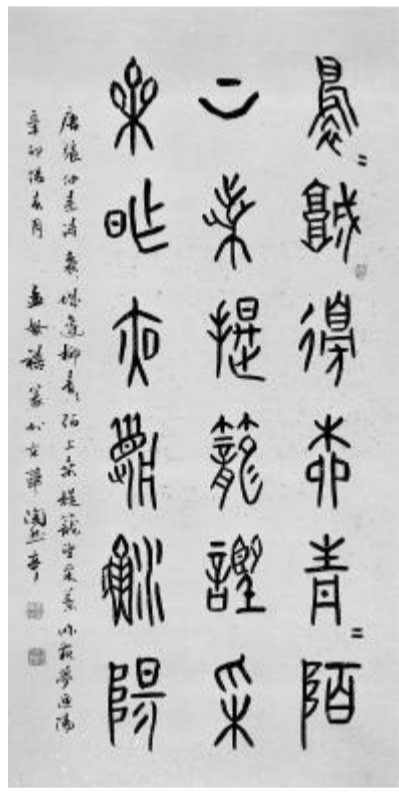 裊〻城邊柳青〻陌
上桑提籠忘采
葉昨夜夢漁陽
唐張仲素詩 裊〻城邊柳青〻陌上桑提籠忘采葉昨夜夢漁陽
辛卯陽春月